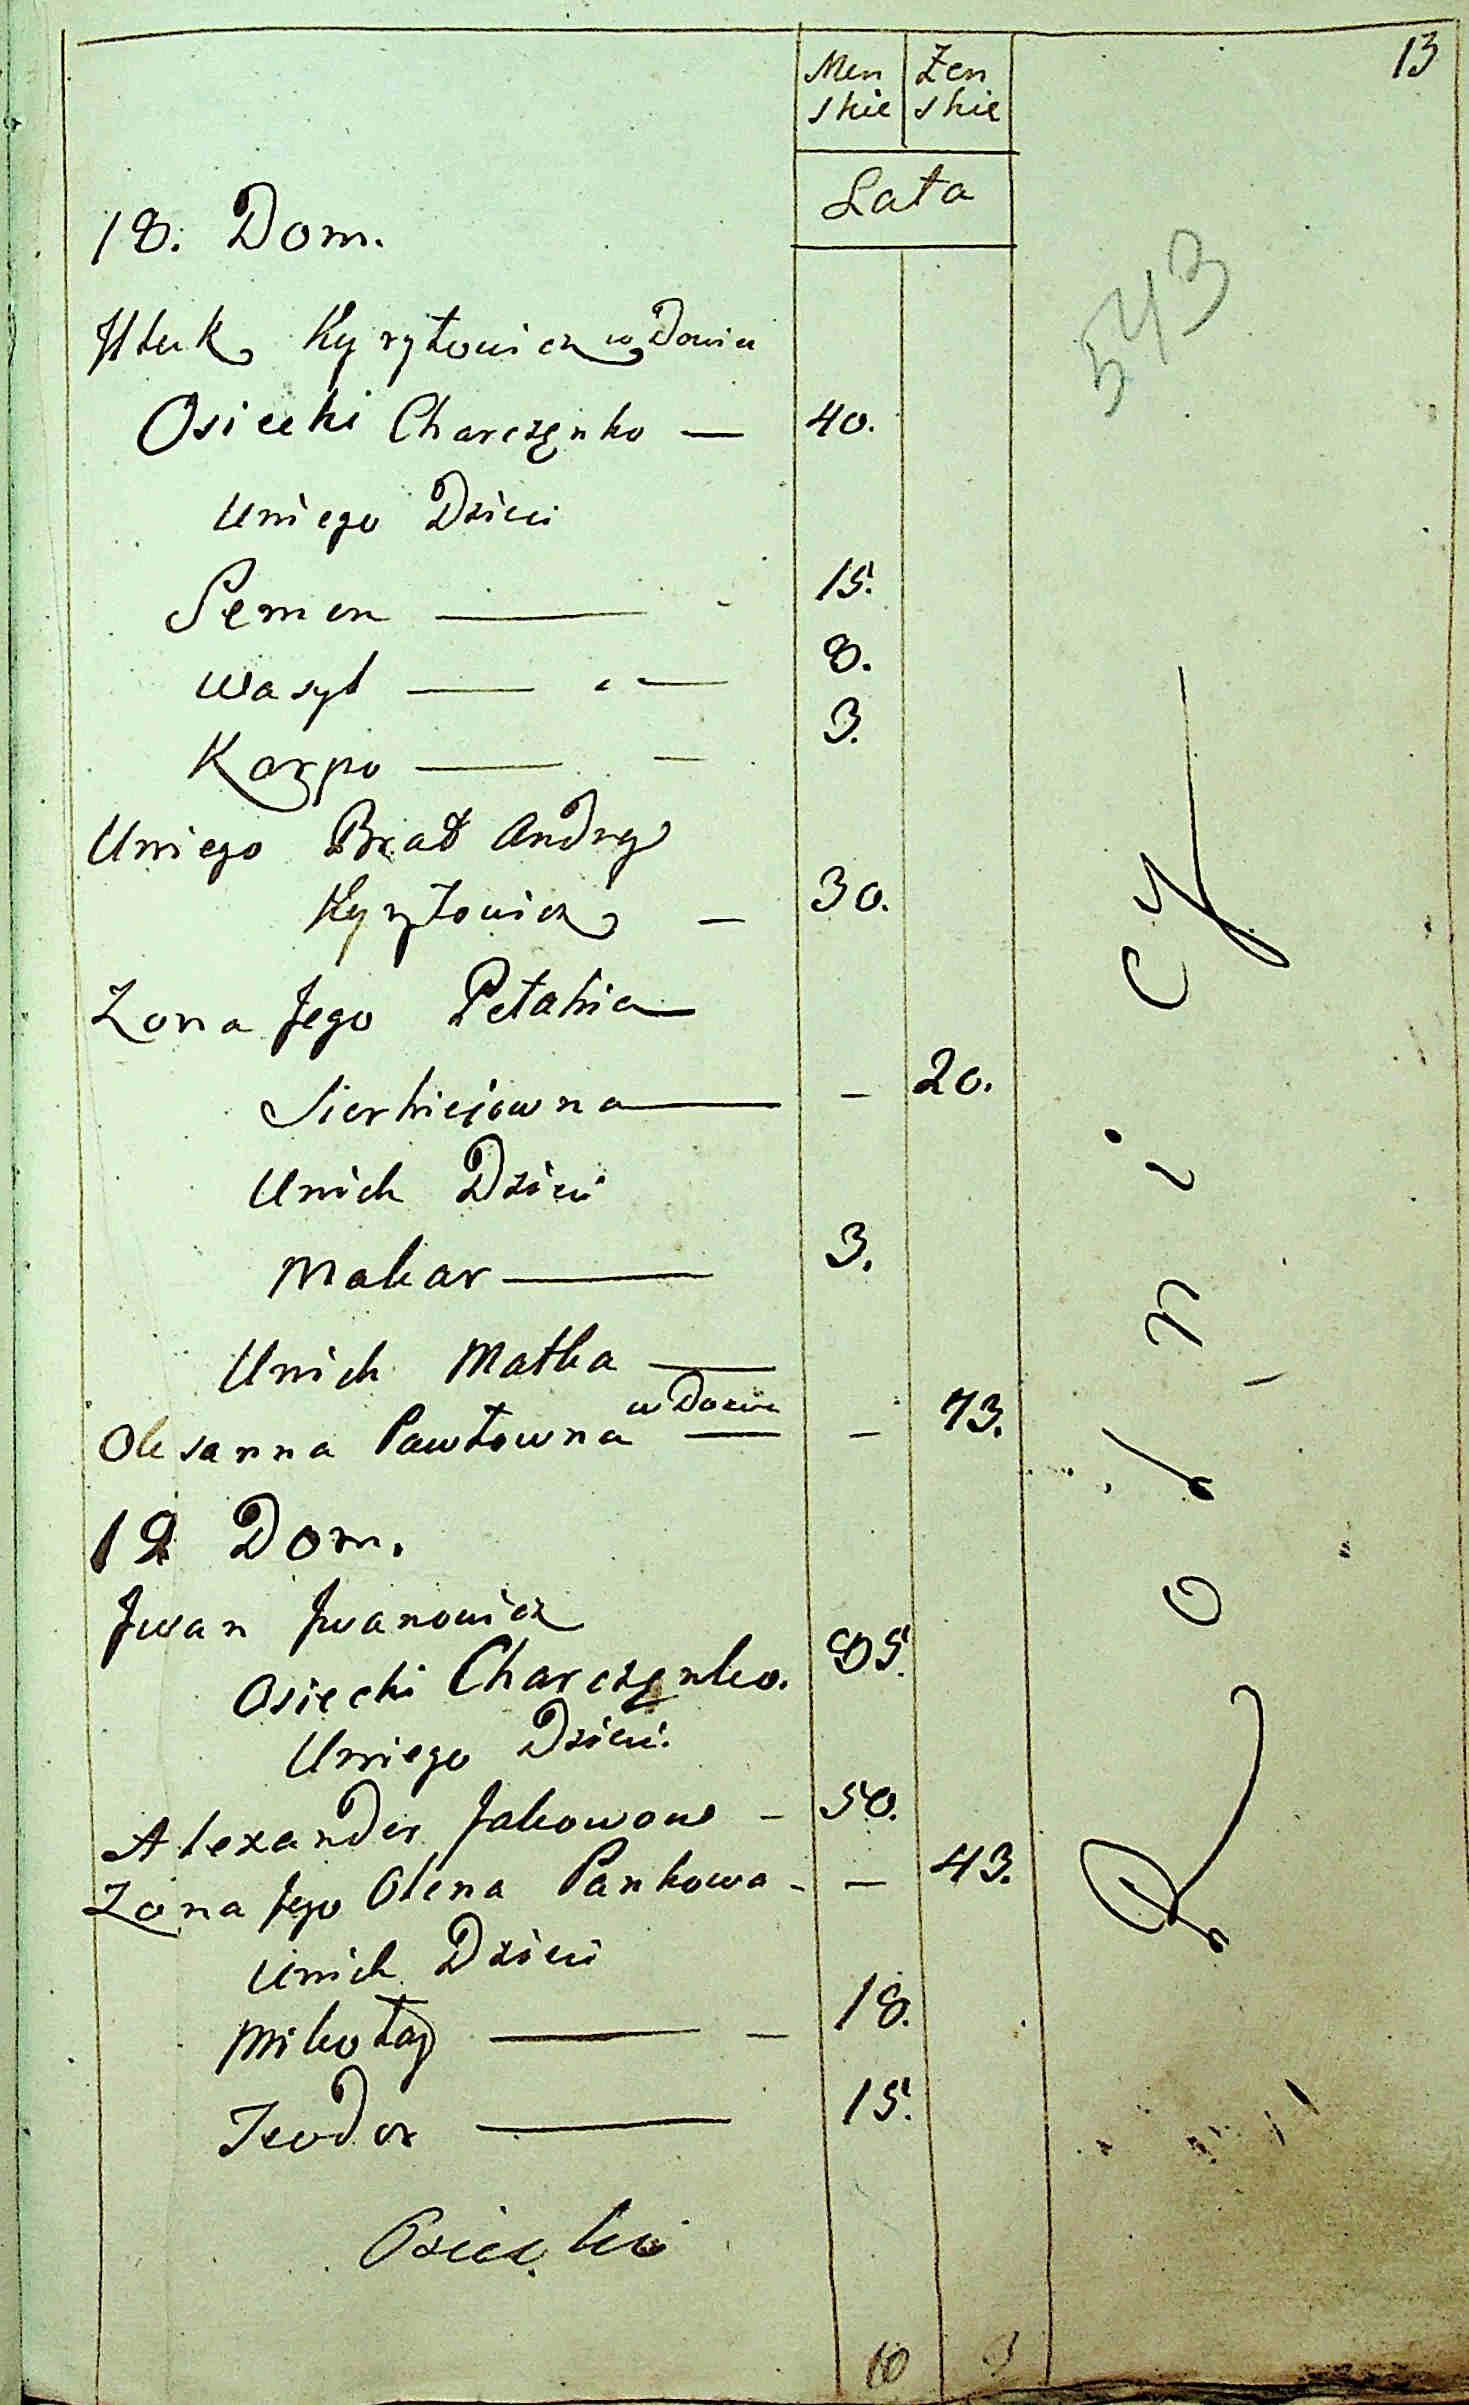 13
Men Żen
skie skie
Lata
543
18. Dom.
Hluk Kyryłowicz wdowiec
Osiecki Charczęnko — 40.
Uniego Dzieci
Semen — 15.
Wasyl — 8.
Karpo — 3.
Uniego Brat Andrey
Kyryłowicz — 30.
Zona Jego Pelahia
Sierhiejowna — 20.
Unich Dzieci
Makar — 3.
Unich Matka —
wdowa
Olexanna Pawłowna — 73.
19 Dom.
Jwan Jwanowicz
Osiecki Charczęnko. 95.
Uniego Dzieci.
Alexander Jakowow — 50.
Zona Jego Olena Pankowa - — 43.
Unich Dzieci
Mikołay — 18.
Teodor — 15.
Osiecki
10 3
Rolnicy